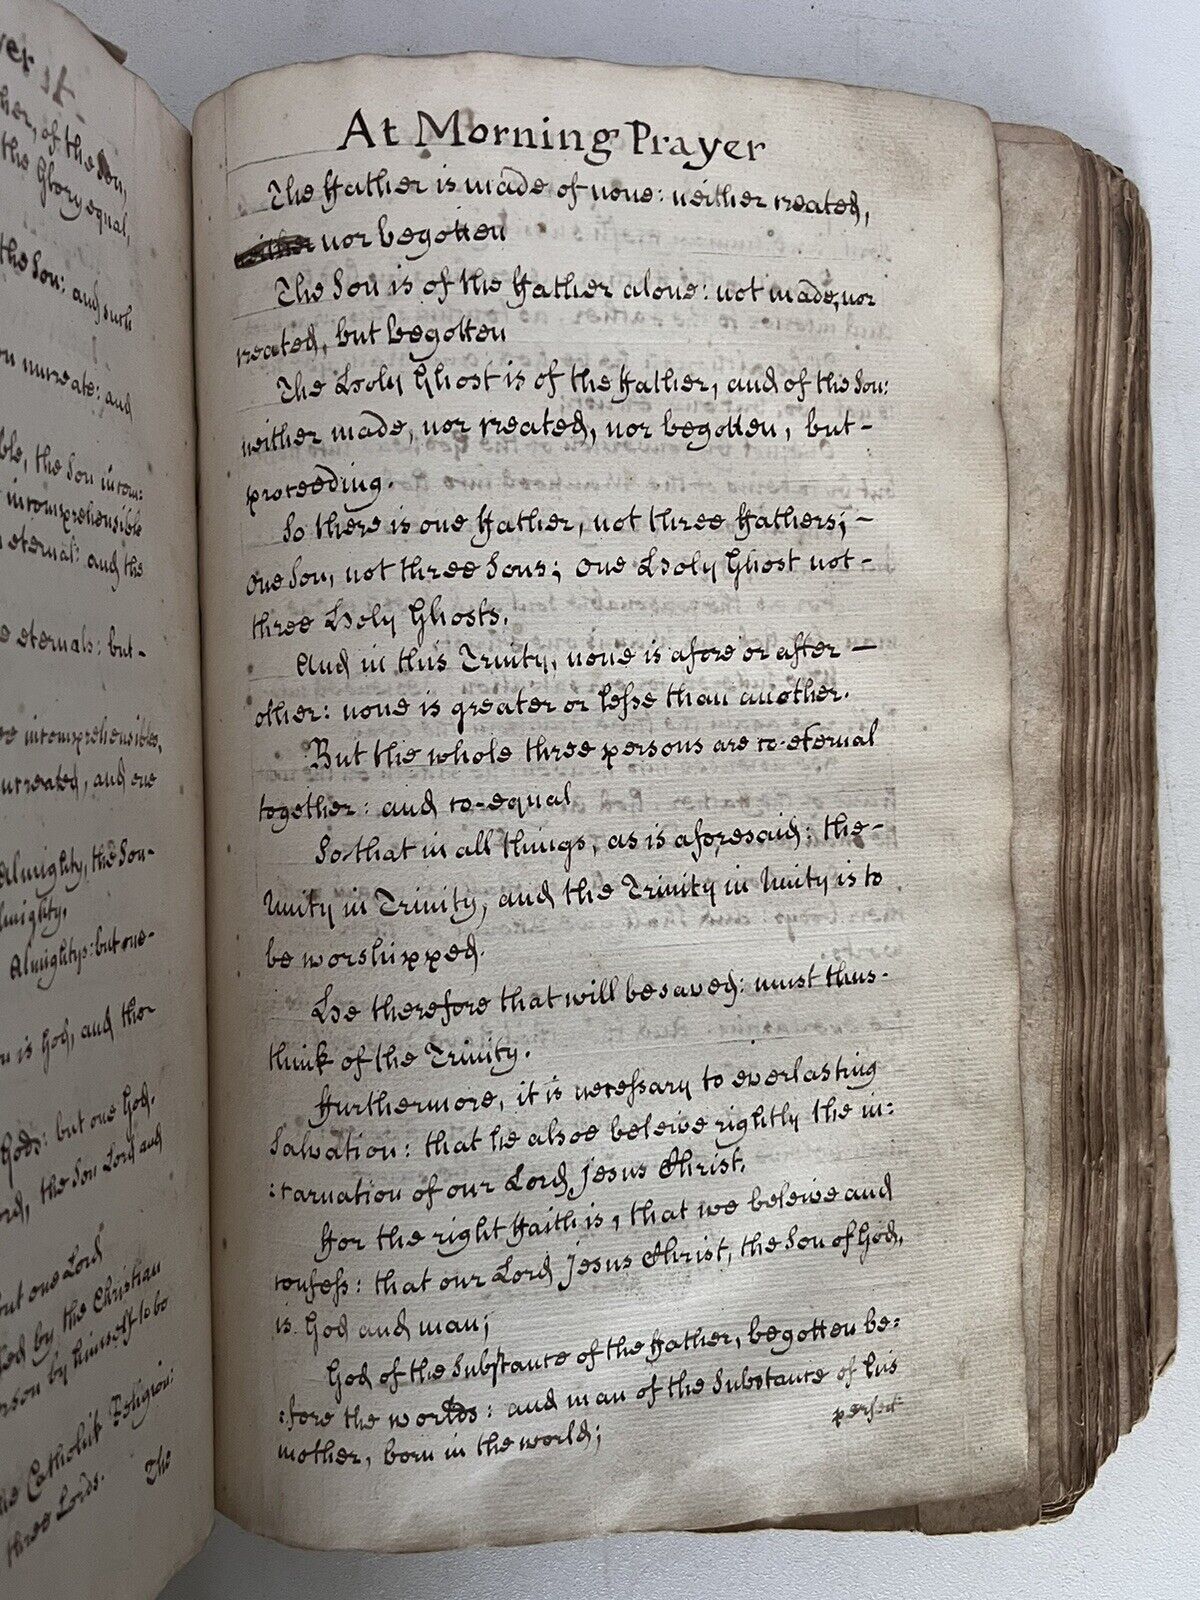 ther, of the Son,
the Glory equal,
the Son: and such
uncreate: and
ble, the Son incom:
incomprehensible
eternal: and the
eternals: but-
incomprehensibles,
uncreated, and one
Almighty, the Son-
lmighty.
Almightys: but one-
is God, and the
Gods: but one God.
the Son Lord and
but one Lord
by the Christian
by himself to be
the Catholick Religion:
three Lords. The
At Morning Prayer
The Father is made of none: neither created,
neither nor begotten
The Son is of the Father alone: not made, nor
created, but begotten
The Holy Ghost is of the Father, and of the Son:
neither made, nor created, nor begotten, but-
proceeding.
So there is one Father, not three Fathers; -
one Son, not three Sons; one Holy Ghost not-
three Holy Ghosts.
And in this Trinity, none is afore or after -
other: none is greater or lesse than another.
But the whole three persons are co-eternal
together: and co-equal
So that in all things, as is aforesaid: the-
Unity in Trinity, and the Trinity in Unity is to
be worshipped.
He therefore that will be saved: must thus-
think of the Trinity.
Furthermore, it is necessary to everlasting
Salvation: that he alsoe beleive rightly the in:
:carnation of our Lord Jesus Christ.
For the right Faith is, that we beleive and
confess: that our Lord Jesus Christ, the Son of God,
is God and man;
God of the Substance of the Father, begotten be:
:fore the worlds: and man of the Substance of his
mother, born in the world;
perfect